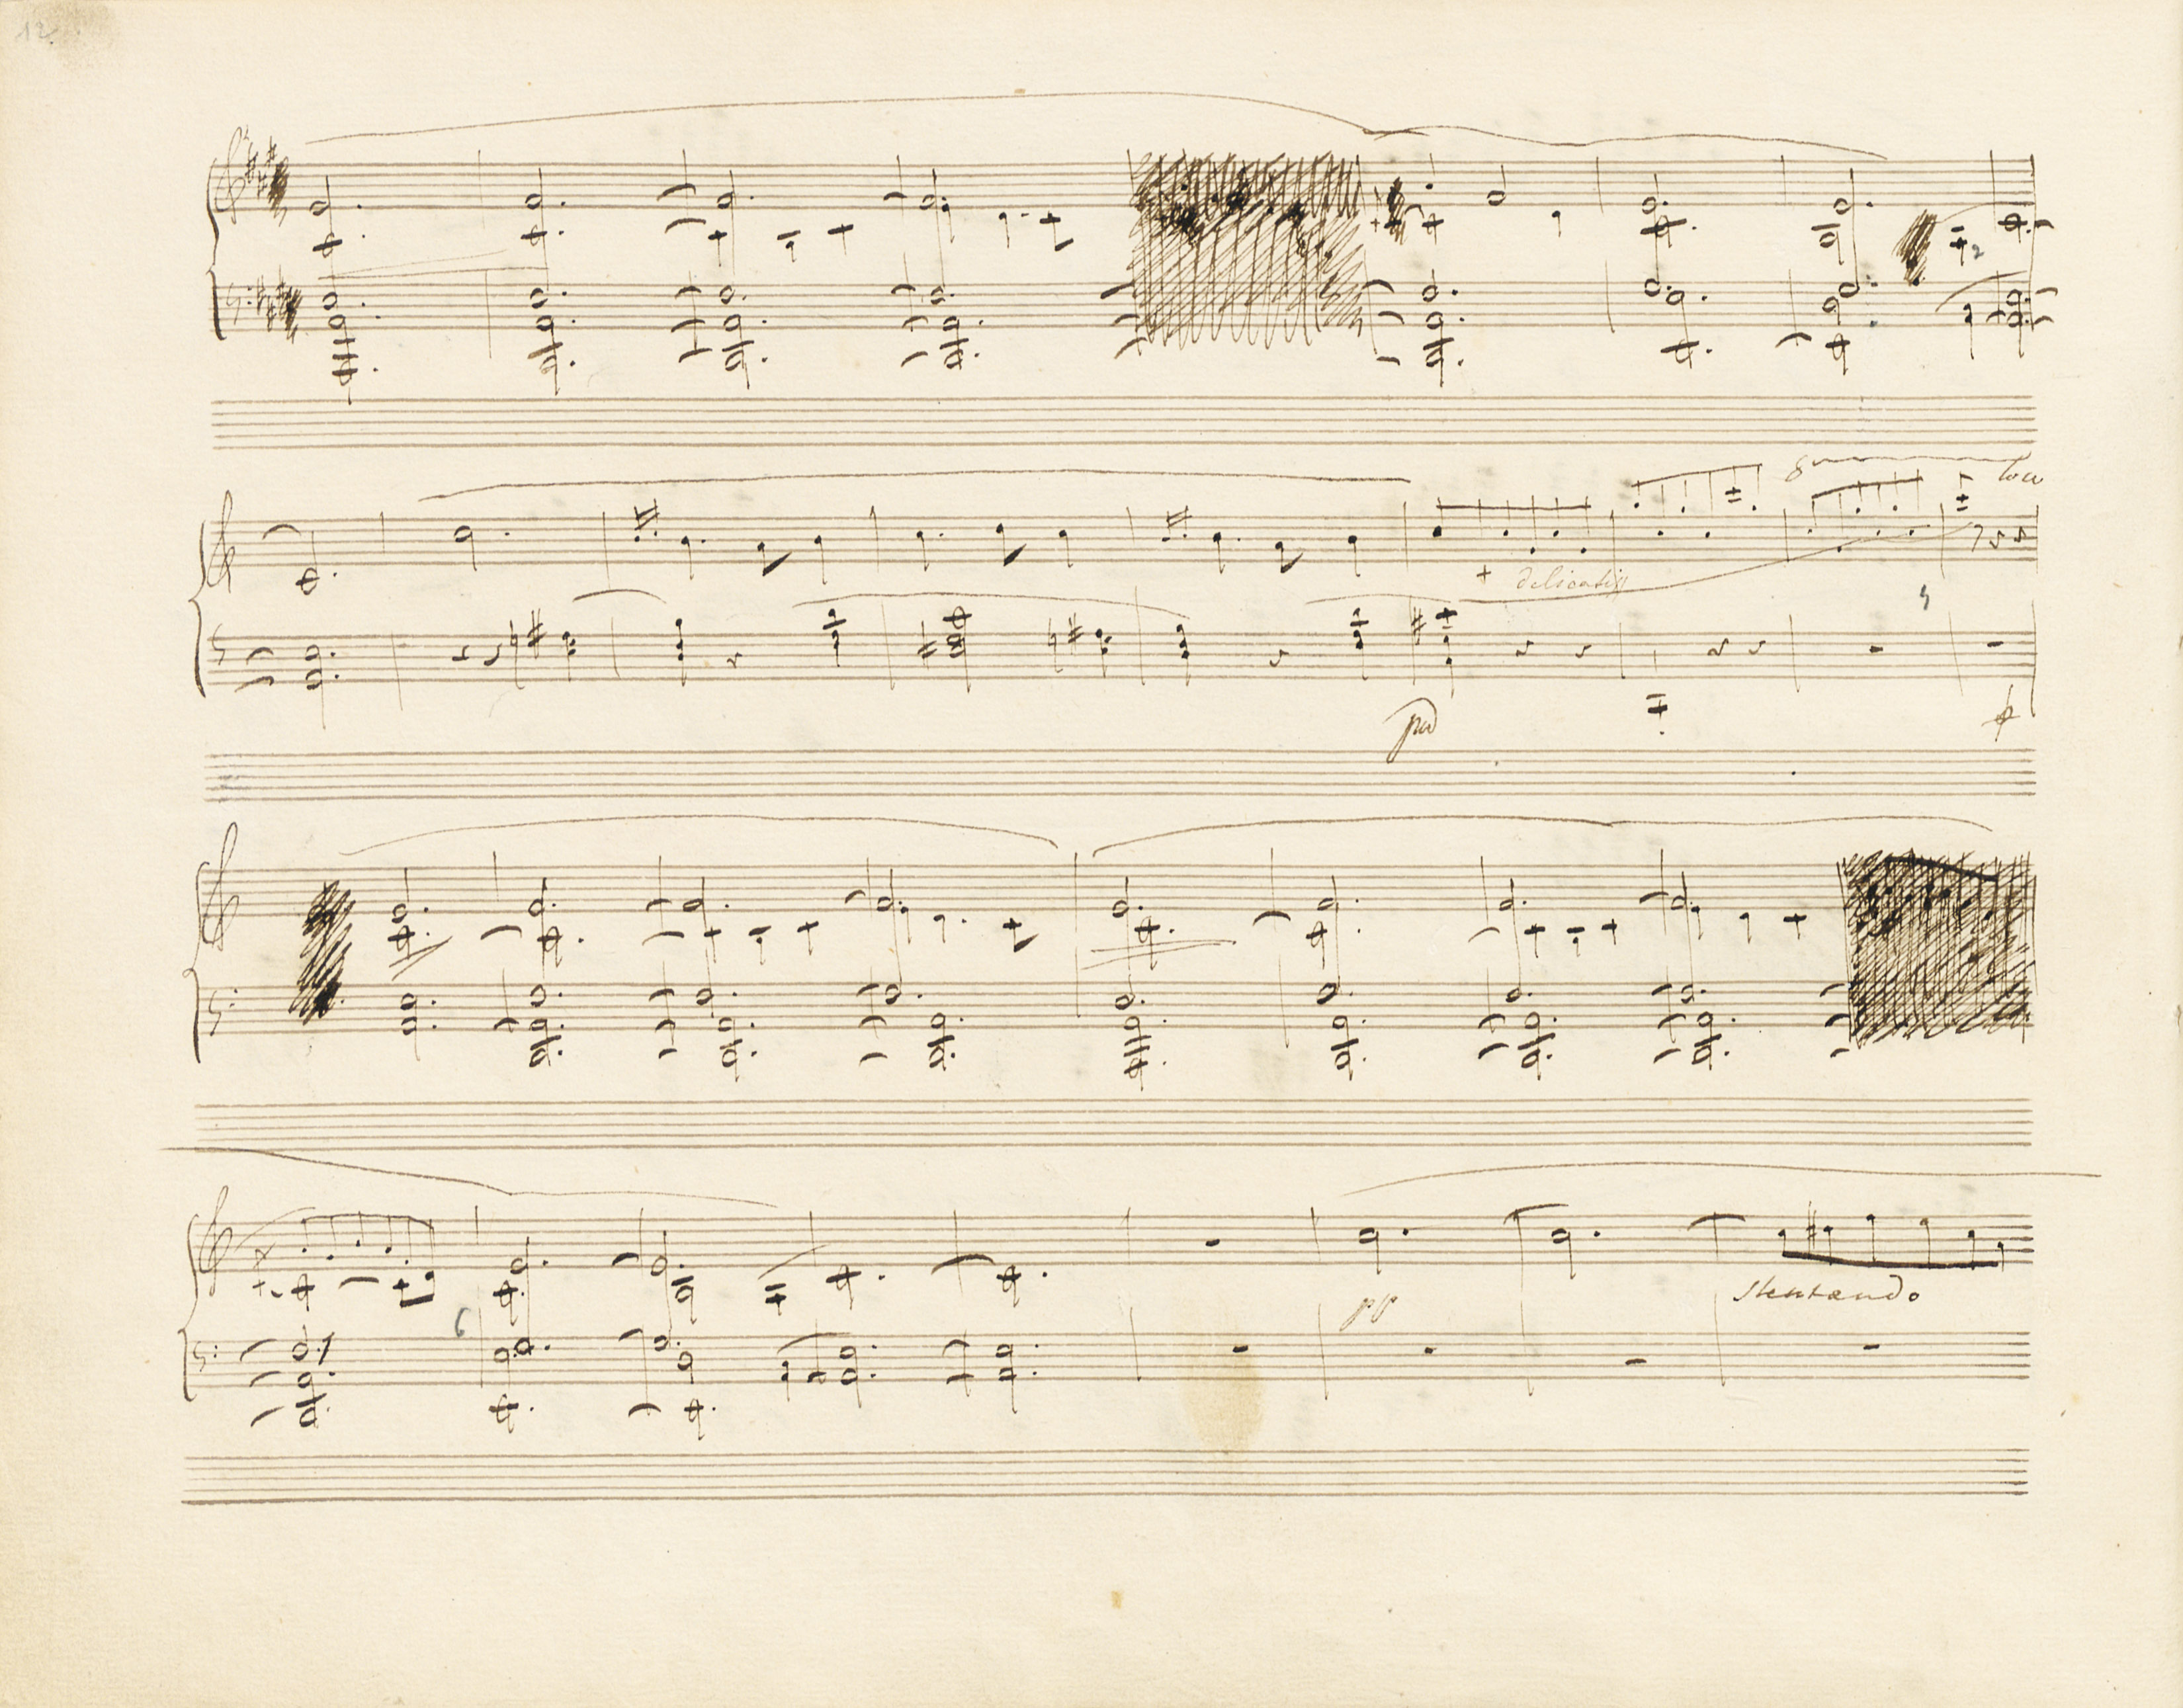 12.
8
loco
delicatiss
pp
stentando
6